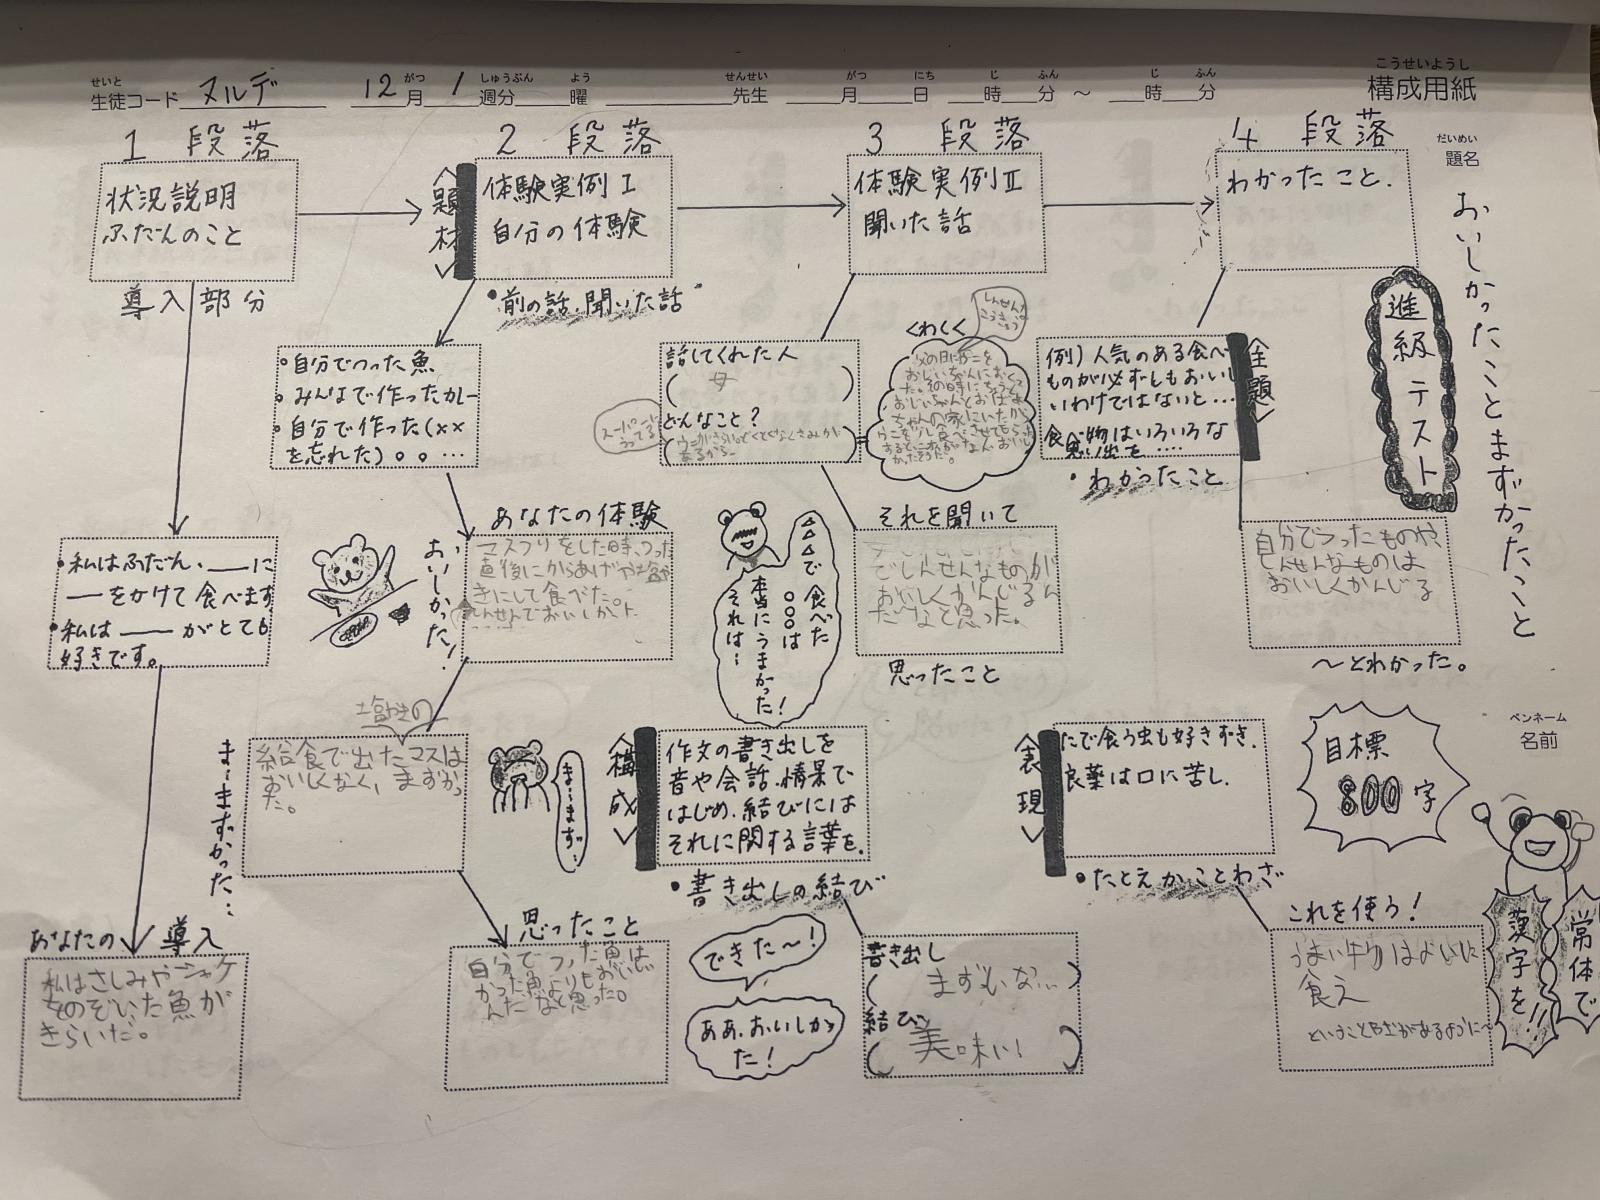 せいと
生徒コード ヌルデ 12月 1週分 曜 先生 月 日 時 分 ～ 時 分
がつ しゅうぶん よう せんせい がつ にち じ ふん じ ふん
こうせいようし
構成用紙
だいめい
題名
おいしかったこととまずかったこと
進級テスト
1 段落
状況説明
ふだんのこと
導入部分
・私はふだん、――に
――をかけて食べます
・私は――がとても
好きです。
あなたの導入
私はさしみやシャケ
をのぞいた魚が
きらいだ。
2 段落
〈題材〉
体験実例Ⅰ
自分の体験
・前の話、聞いた話
・自分でつった魚
・みんなで作ったカレー
・自分で作った(××
を忘れた)。。…
あなたの体験
おいしかった!
マスつりをした時、つった
直後にからあげや塩や
きにして食べた。
しんせんでおいしかった
ま…まずかった…
塩やきの
給食で出たマスは
おいしくなく、まずかっ
た。
ま…まず…
思ったこと
自分でつった魚は
かった魚よりもおいし
んだなと思った。
3 段落
体験実例Ⅱ
聞いた話
話してくれた人
(母)
どんなこと?
スーパーで
うってる
くわしく
しんせんな
それを聞いて
でしんせんなものが
おいしくかんじるん
だなと思った。
思ったこと
△△△で食べた
○○○は
本当にうまかった!
それは…
〈構成〉
作文の書き出しを
音や会話、情景で
はじめ、結びには
それに関する言葉を。
・書き出しの結び
できた～!
ああ、おいしかっ
た!
書き出し
(まずいな…)
結び
(美味い!)
4 段落
わかったこと.
〈主題〉
例)人気のある食べ
ものが必ずしもおいし
いわけではないと…
食べ物はいろいろな
思い出も….
・わかったこと
自分でつったものや、
しんせんなものは
おいしくかんじる
～とわかった。
〈表現〉
たで食う虫も好きずき.
良薬は口に苦し.
・たとえかことわざ
これを使う!
うまい物はよいに
食え
ということわざがあるように～
ペンネーム
名前
目標
800字
漢字を!!
常体で